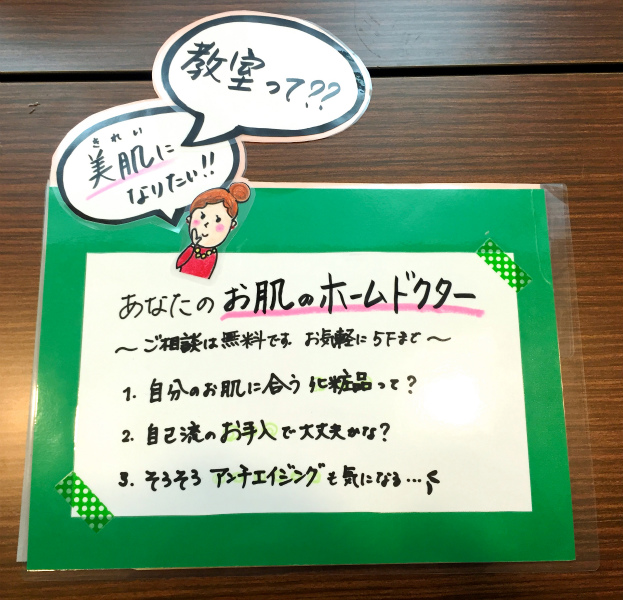 教室って??
きれい
美肌に
なりたい!!
あなたの お肌のホームドクター
～ご相談は無料です。お気軽に5Fまで～
1. 自分のお肌に合う 化粧品って?
2. 自己流のお手入で大丈夫かな?
3. そろそろ アンチエイジングも気になる…